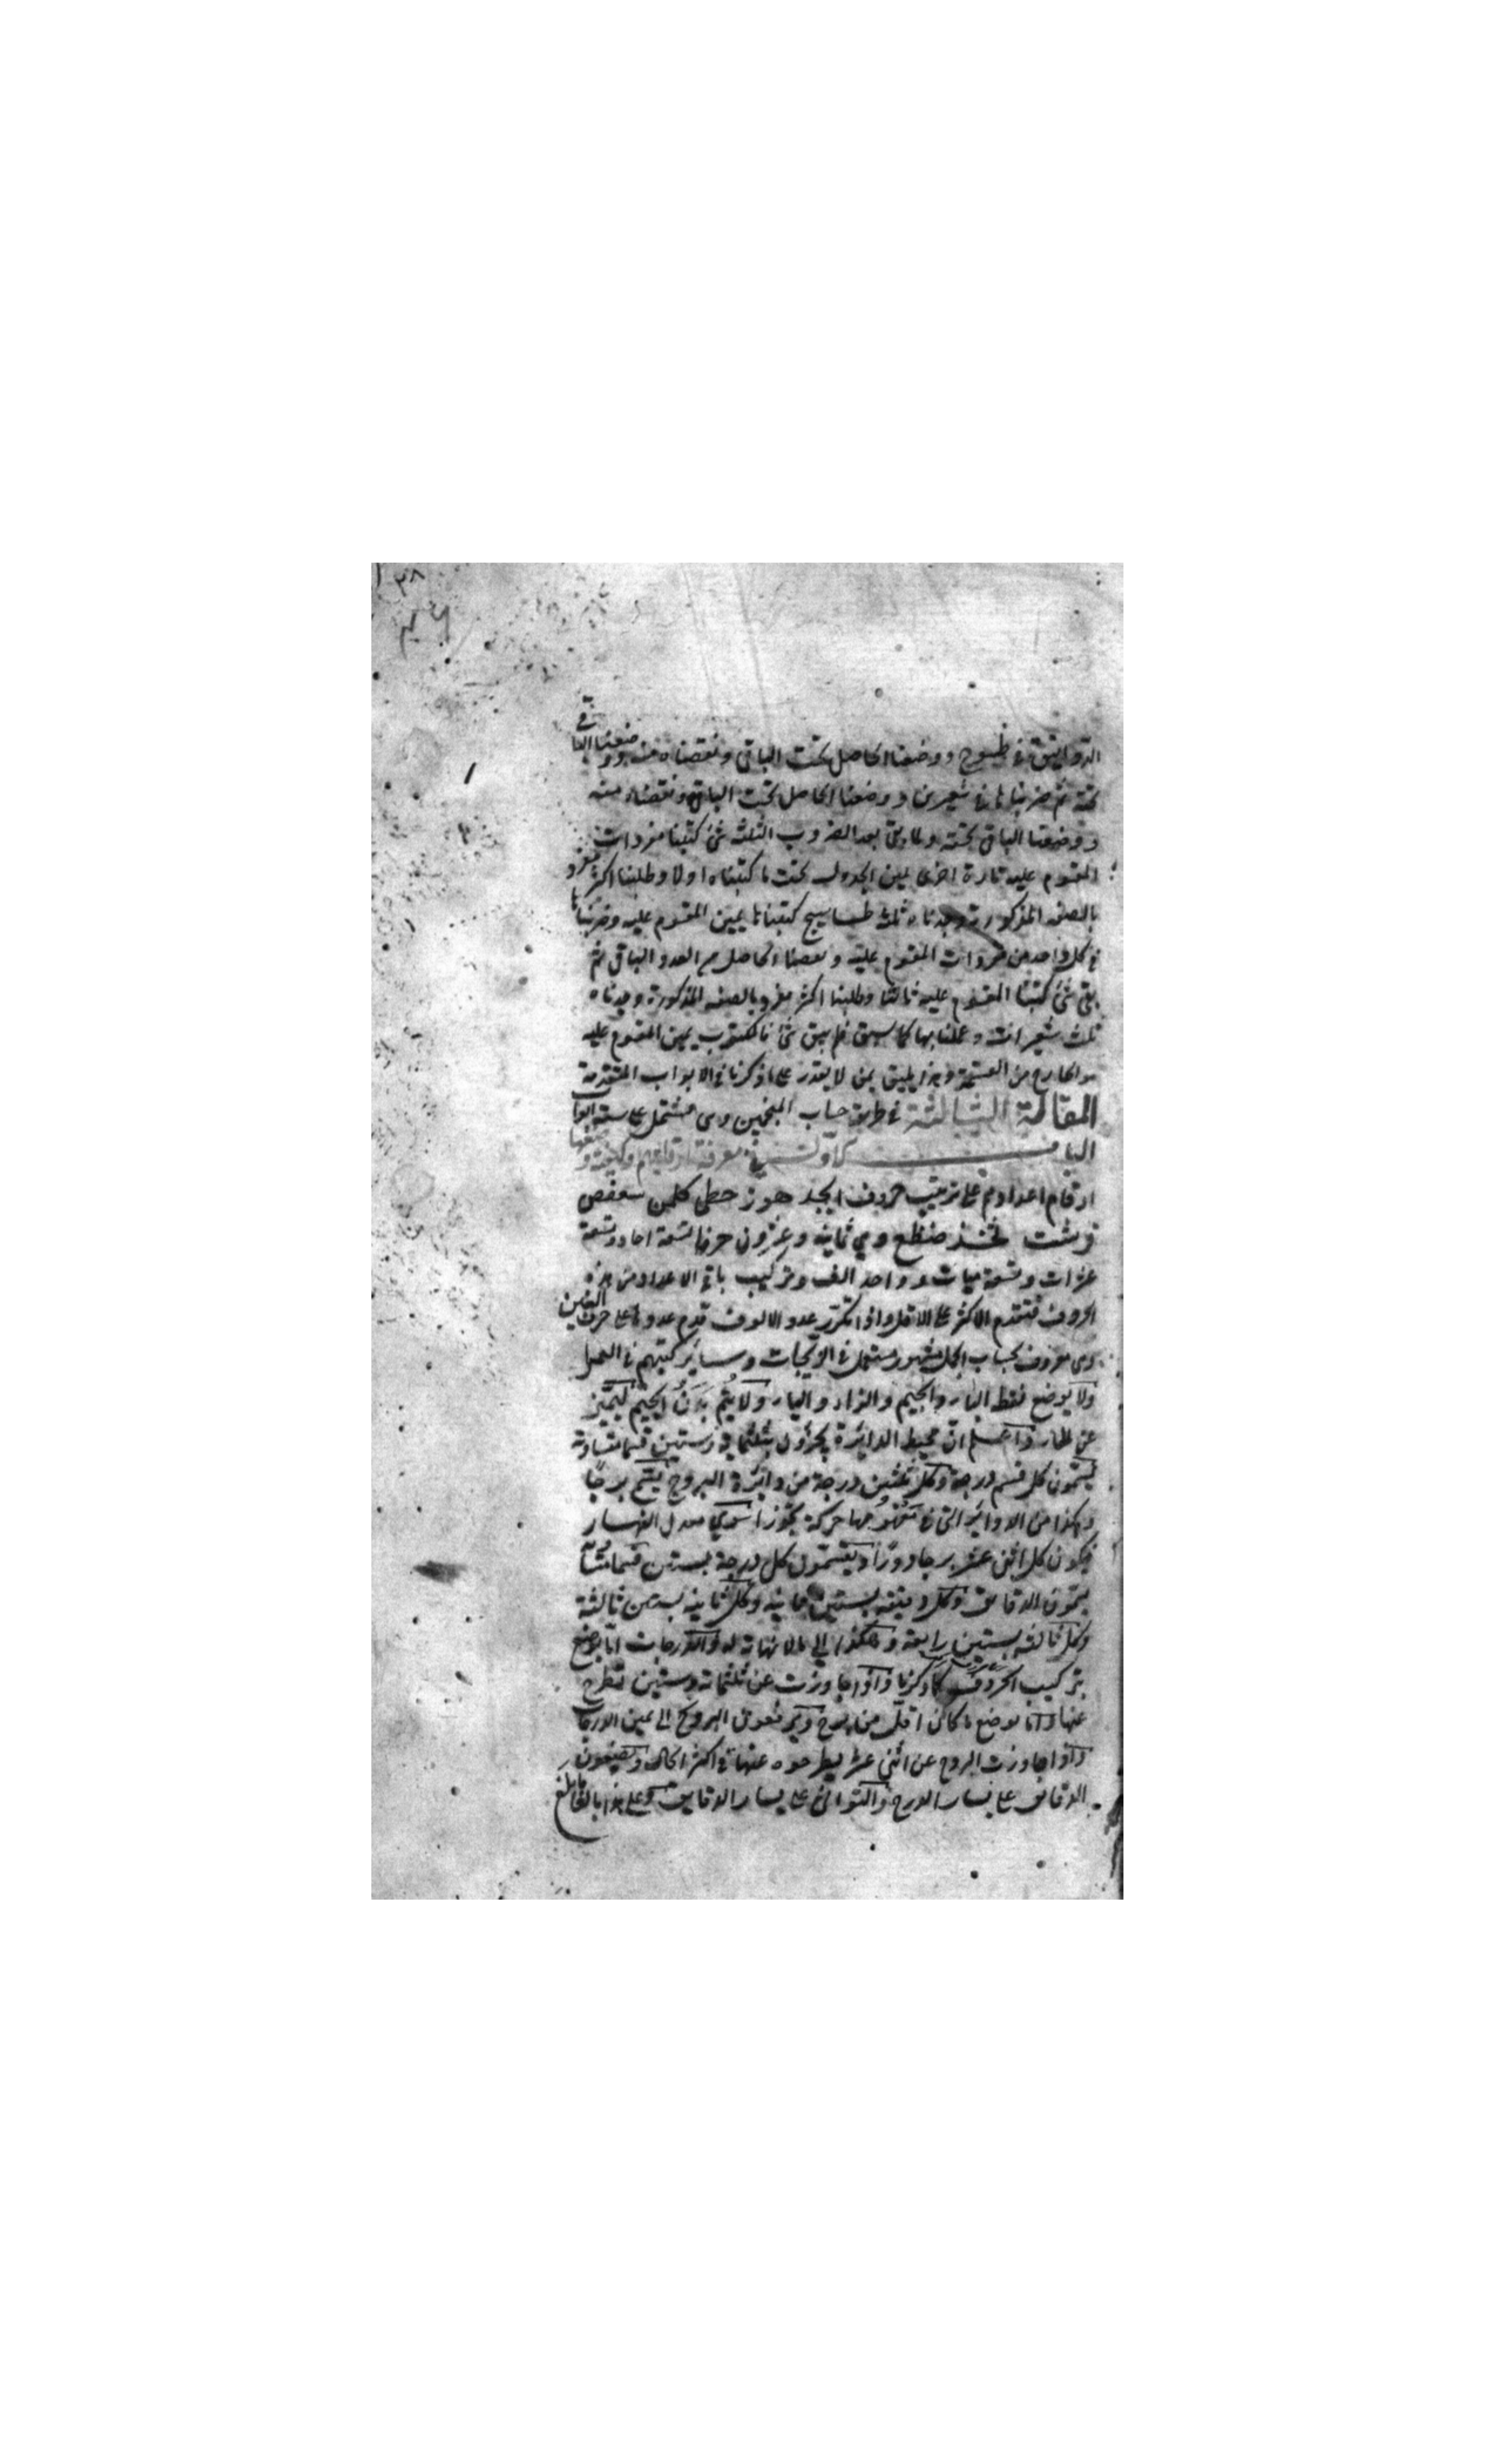 ٣٨
الدوانيق في طسوج ووضعنا الحاصل تحت الباقي ونقصناه منه ووضعنا الباقي
تحته ثم ضربناها في شعيرين ووضعنا الحاصل تحت الباقي ونقصناه منه
ووضعنا الباقي تحته ولما بقي بعد الضروب الثلثة شئ كتبنا مفردات
المقسوم عليه تارة اخرى يمين الجدول تحت ما كتبناه اولا وطلبنا اكثر مفرد
بالصفة المذكورة وجدناه ثلثة طساسيج كتبناها يمين المقسوم عليه وضربناها
في كل واحد من مفردات المقسوم عليه ونقصنا الحاصل من العدد الباقي ثم
بقي شئ كتبنا المقسوم عليه ثالثا وطلبنا اكثر مفرد بالصفة المذكورة وجدناه
ثلث شعيرات وعملنا بها كما سبق فلم يبق شئ فالمكتوب يمين المقسوم عليه
هو الخارج من القسمة وهذا يليق بمن لا يقدر على ما ذكرنا في الابواب المتقدمة
المقالة الثالثة في طريقة حساب المنجمين وهى مشتمل على ستة ابواب
الباب الاول في معرفة ارقامهم وكيفية وضعها
ارقام اعدادهم على ترتيب حروف ابجد هوز حطى كلمن سعفص
قرشت ثخذ ضظغ وهي ثمانية وعشرون حرفا تسعة احاد وتسعة
عشرات وتسعة ميات وواحد الف وتركيب باقي الاعداد من هذه
الحروف فتقدم الاكثر على الاقل واذا تكرر عدد الالوف قدم عددها على حرف الغين
وهى معروف بحساب الجمل مشهور مستعمل في الزيجات وسائر كتبهم في العمل
ولا يوضع نقطة الباء والجيم والزاء والياء ولا يتم بدن الجيم ليتميز
عن الحاء واعلم ان محيط الدائرة يجزؤن بثلثمائة وستين قسما متساوية
يسمون كل قسم درجة وكل ثلثين درجة من دائرة البروج يسمى برجا
وهكذا من الدوائر التي في حركة سوى معدل النهار
فيكون كل اثنى عشر برجا دورا ويقسمون كل درجة بستين قسما
يسمون الدقائق وكل دقيقة بستين ثانية وكل ثانية بستين ثالثة
وكل ثالثة بستين رابعة وهكذا الى ما لا نهاية له والدرجات انما يوضع
بتركيب الحروف كما ذكرنا واذا جاوزت عن ثلثمائة وستين تطرح
عنها وانما يوضع ما كان اقل من برج ويرفعون البروج الى يمين الدرجات
واذا جاوزت البروج عن اثنى عشر يطرحوه عنها في اكثر الحال ويضعون
الدقائق على يسار الدرج والثواني على يسار الدقائق وعلى هذا بالغا ما بلغ